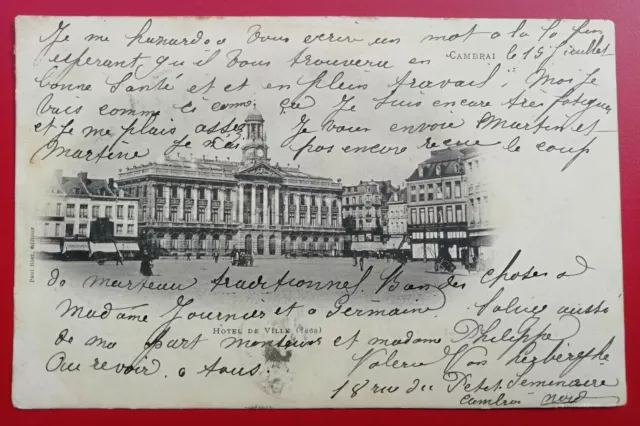 Je me hazarde a vous ecrire un mot a la
CAMBRAI le 15 juillet
esperant qu'il vous trouvera en
bonne santé et et en plein travail, Moi Je
vais comme ci comme ça Je suis encore très fatiguée
et Je me plais assez Je vous envoie Martin et
Martine Je n'ai pas encore recue le coup
de marteau traditionnel. Bien des choses a
Madame Fournier et a Germaine. Saluez aussi
HOTEL DE VILLE (1868)
de ma part monsieur et madame Philippe
Au revoir a tous. Valerie Van
18 rue du Petit Seminaire
Cambrai nord
Paul éditeur